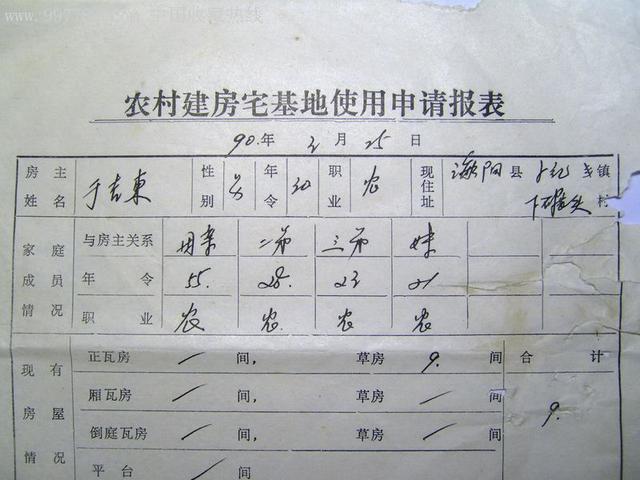 农村建房宅基地使用申请报表
90年 2月 25日
房主姓名 于吉東 性别 男 年令 30 职业 农 现住址 滎阳县 乡镇 村
家庭成员情况 与房主关系 母亲 二弟 三弟 妹
年令 55. 28. 23 21
职业 农 农. 农 农
现有房屋情况 正瓦房 / 间, 草房 9. 间 合计
厢瓦房 / 间, 草房 / 间 9.
倒庭瓦房 / 间, 草房 / 间
平台 / 间